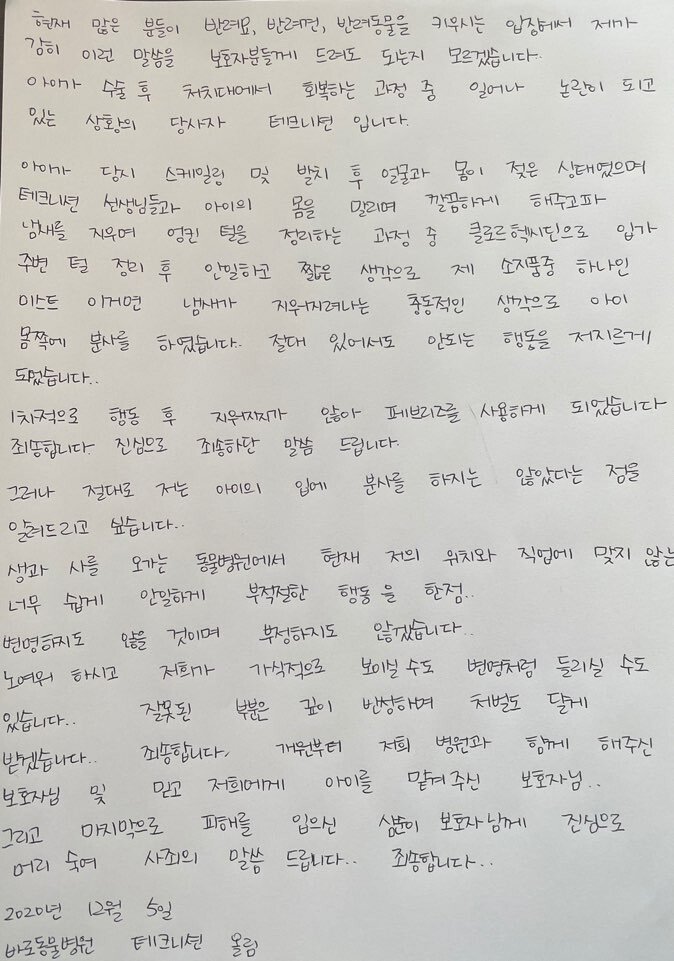 현재 많은 분들이 반려묘, 반려견, 반려동물을 키우시는 입장에서 제가
감히 이런 말씀을 보호자분들께 드려도 되는지 모르겠습니다.
아이가 수술 후 처치대에서 회복하는 과정 중 일어나 논란이 되고
있는 상황의 당사자 테크니션 입니다.
아이가 당시 스케일링 및 발치 후 얼굴과 몸이 젖은 상태였으며
테크니션 선생님들과 아이의 몸을 말리며 깔끔하게 해주고파
냄새를 지우며 엉킨 털을 정리하는 과정 중 클로르헥시딘으로 입가
주변 털 정리 후 안일하고 짧은 생각으로 제 소지품중 하나인
미스트 이거면 냄새가 지워지려나는 충동적인 생각으로 아이
몸쪽에 분사를 하였습니다. 절대 있어서도 안되는 행동을 저지르게
되었습니다..
1차적으로 행동 후 지워지지가 않아 페브리즈를 사용하게 되었습니다
죄송합니다. 진심으로 죄송하단 말씀 드립니다.
그러나 절대로 저는 아이의 입에 분사를 하지는 않았다는 점을
알려드리고 싶습니다..
생과 사를 오가는 동물병원에서 현재 저의 위치와 직업에 맞지 않는
너무 쉽게 안일하게 부적절한 행동을 한점..
변명하지도 않을 것이며 부정하지도 않겠습니다..
노여워 하시고 저희가 가식적으로 보이실 수도 변명처럼 들리실 수도
있습니다.. 잘못된 부분은 깊이 반성하며 처벌도 달게
받겠습니다.. 죄송합니다. 개원부터 저희 병원과 함께 해주신
보호자님 및 믿고 저희에게 아이를 맡겨주신 보호자님..
그리고 마지막으로 피해를 입으신 심쿵이 보호자님께 진심으로
머리 숙여 사죄의 말씀 드립니다.. 죄송합니다..
2020년 12월 5일
바로동물병원 테크니션 올림